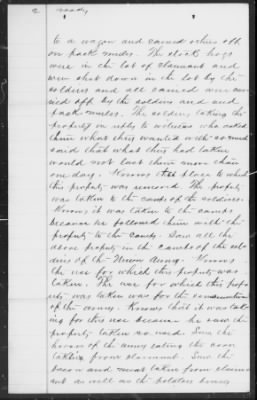 2 Moody
to a wagon and carried others off
on pack mules. The stock hogs
were in the lot of claimant and
were shot down in the lot by the
soldiers and all carried were car-
ried off by the soldiers and said
pack mules. The soldiers taking the
property in reply to witness who asked
them what they wanted with so much
said that what they had taken
would not last them more than
one day. Knows the place to which
this property was removed. The property
was taken to the camps of the soldiers.
Knows it was taken to the camps
because he followed them with the
property to the camps. Saw all the
above property in the camps of the sol-
diers of the Union Army. Knows
the use for which this property was
taken. The use for which this prop-
erty was taken was for the consumption
of the army. Knows that it was tak-
ing for this use because he saw the
property taken so used. Saw the
horses of the army eating the corn
taken from claimant. Saw the
bacon and meat taken from claim-
ant as well as the potatoes